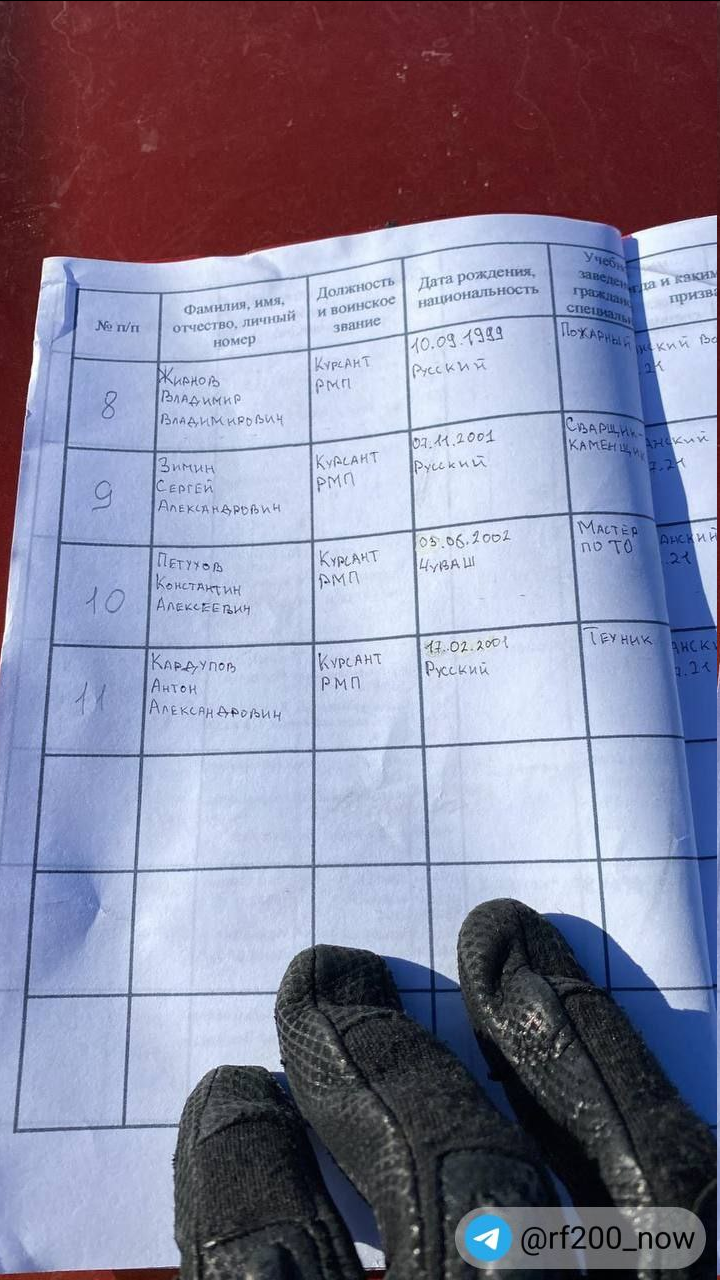 № п/п
Фамилия, имя,
отчество, личный
номер
Должность
и воинское
звание
Дата рождения,
национальность
8
Жирнов
Владимир
Владимирович
Курсант
РМП
10.09.1999
Русский
Пожарный
9
Зимин
Сергей
Александрович
Курсант
РМП
07.11.2001
Русский
Сварщик-
каменщик
10
Петухов
Константин
Алексеевич
Курсант
РМП
03.06.2002
Чуваш
Мастер
по ТО
11
Кардупов
Антон
Александрович
Курсант
РМП
17.02.2001
Русский
Техник
@rf200_now